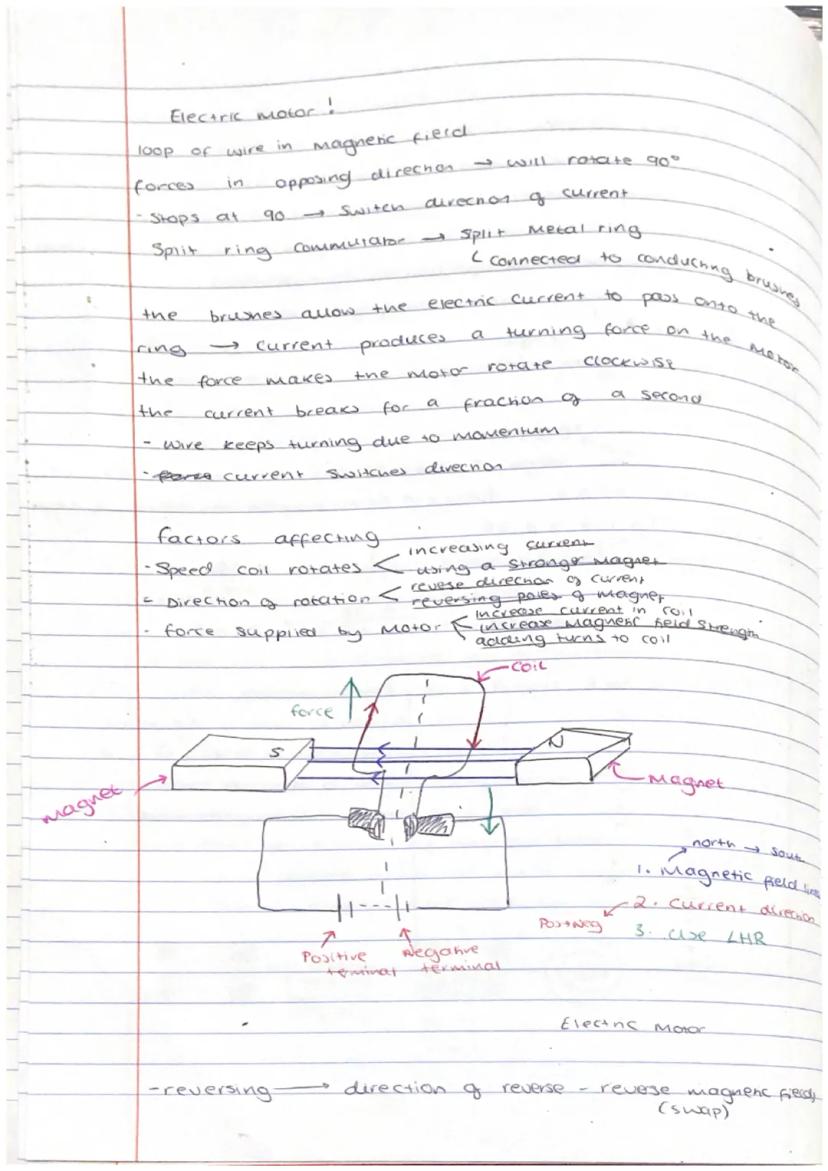 Electric Motor!
loop of wire in magnetic field
forces in opposing direction → will rotate 90°
- Stops at 90 → Switch direction of current
Split ring commutator → Split Metal ring
connected to conducting brushes
the brushes allow the electric current to pass onto the
ring → current produces a turning force on the motor
the force makes the motor rotate clockwise
the current breaks for a fraction of a second
- wire keeps turning due to momentum
- current switches direction
factors affecting
increasing current
- Speed coil rotates < using a stronger magnet
reverse direction of current
- Direction of rotation < reversing poles of magnet
increase current in coil
- force supplied by Motor < increase magnetic field strength
adding turns to coil
coil
force
S
N
magnet
Magnet
north → sout
1. Magnetic field lines
2. Current direction
Pos→Neg
3. Use LHR
Positive terminal
Negative terminal
Electric Motor
- reversing → direction of reverse - reverse magnetic field,
(swap)